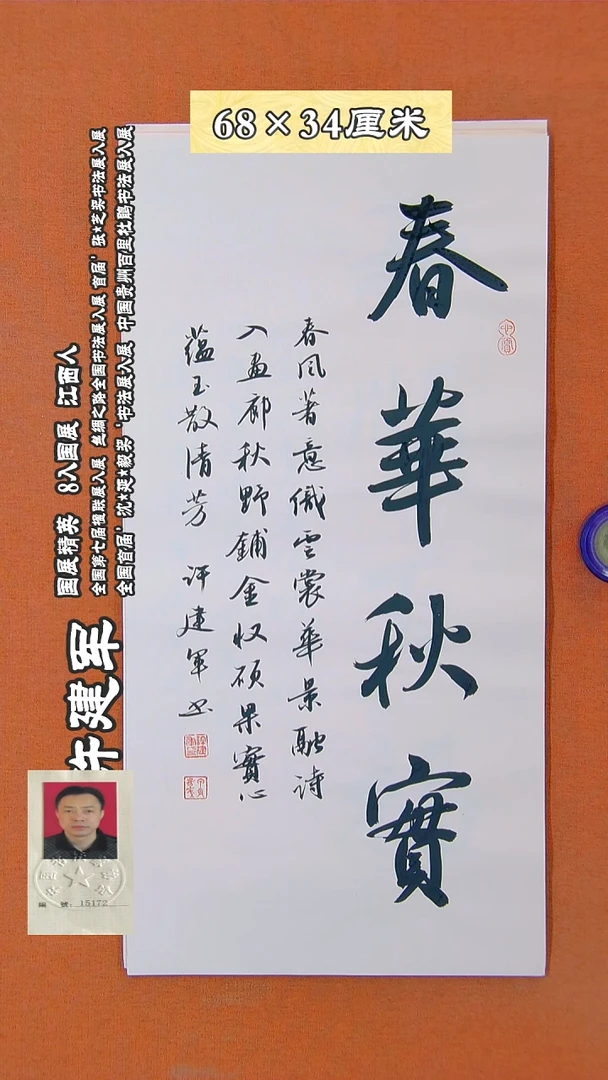 68×34厘米
春華秋實
春风著意織雲裳華景融诗
入画廊秋野鋪金收硕果實心
蕴玉散清芳 许建军书
国展精英 8入国展 江西人
全国第七届楹联展入展 丝绸之路全国书法展入展 首届'张*芝奖书法展入展
全国首届'沈*延*毅奖'书法展入展 中国贵州百里杜鹃书法展入展
许建军
編 號: 15172